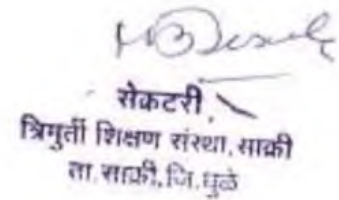 सेक्रटरी
त्रिमुर्ती शिक्षण संस्था, साक्री
ता. साक्री, जि. धुळे